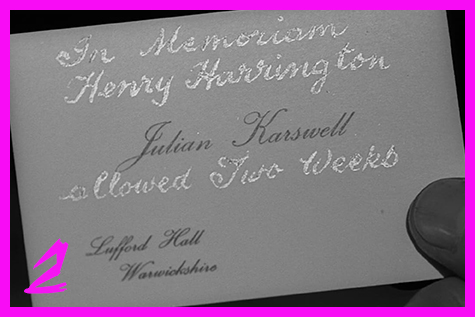 In Memoriam
Henry Harrington
Julian Karswell
allowed Two Weeks
Lufford Hall
Warwickshire
2